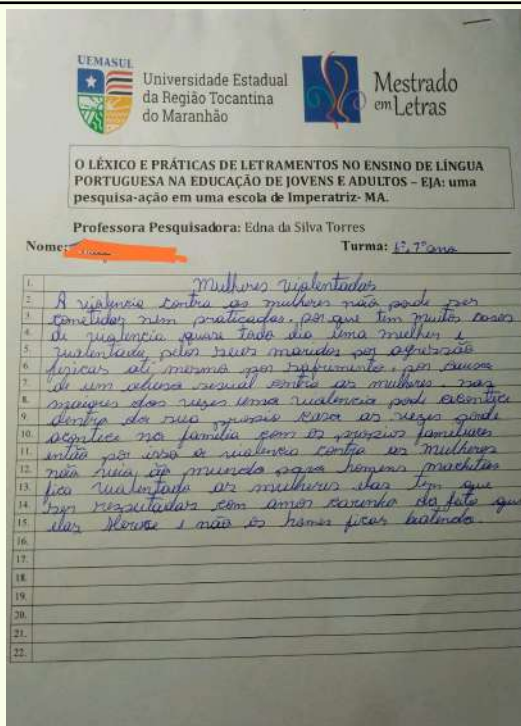 UEMASUL
Universidade Estadual
da Região Tocantina
do Maranhão
Mestrado
em Letras
O LÉXICO E PRÁTICAS DE LETRAMENTOS NO ENSINO DE LÍNGUA
PORTUGUESA NA EDUCAÇÃO DE JOVENS E ADULTOS – EJA: uma
pesquisa-ação em uma escola de Imperatriz- MA.
Professora Pesquisadora: Edna da Silva Torres
Nome: Turma: 6º, 7º ano
1. Mulheres violentadas
2. A violencia contra as mulheres não pode ser
3. cometidas nem praticadas. por que tem muitos casos
4. de violencia quase todo dia uma mulher e
5. pelos seus maridos por agressão
6. fizicas até mesmo por por causa
7. de um abuso sexual contra as mulheres. nas
8. das vezes uma violencia pode acontice
9. dentro da sua casa as vezes pode
10. acontice na familia com os familiares
11. então por isso a violencia contra as mulheres
12. não veio ao mundo para homens machitas
13. fica as mulheres elas tem que
14. ser com amor carinho do fato que
15. elas Merece e não os homes ficar batendo.
16.
17.
18.
19.
20.
21.
22.